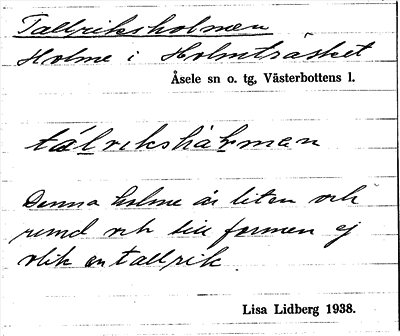 Tallriksholmen
Holme i Holmträsket
Åsele sn o. tg, Västerbottens l.
tálrikshåłman
Denna holme är liten och
rund och till formen ej
olik en tallrik.
Lisa Lidberg 1938.